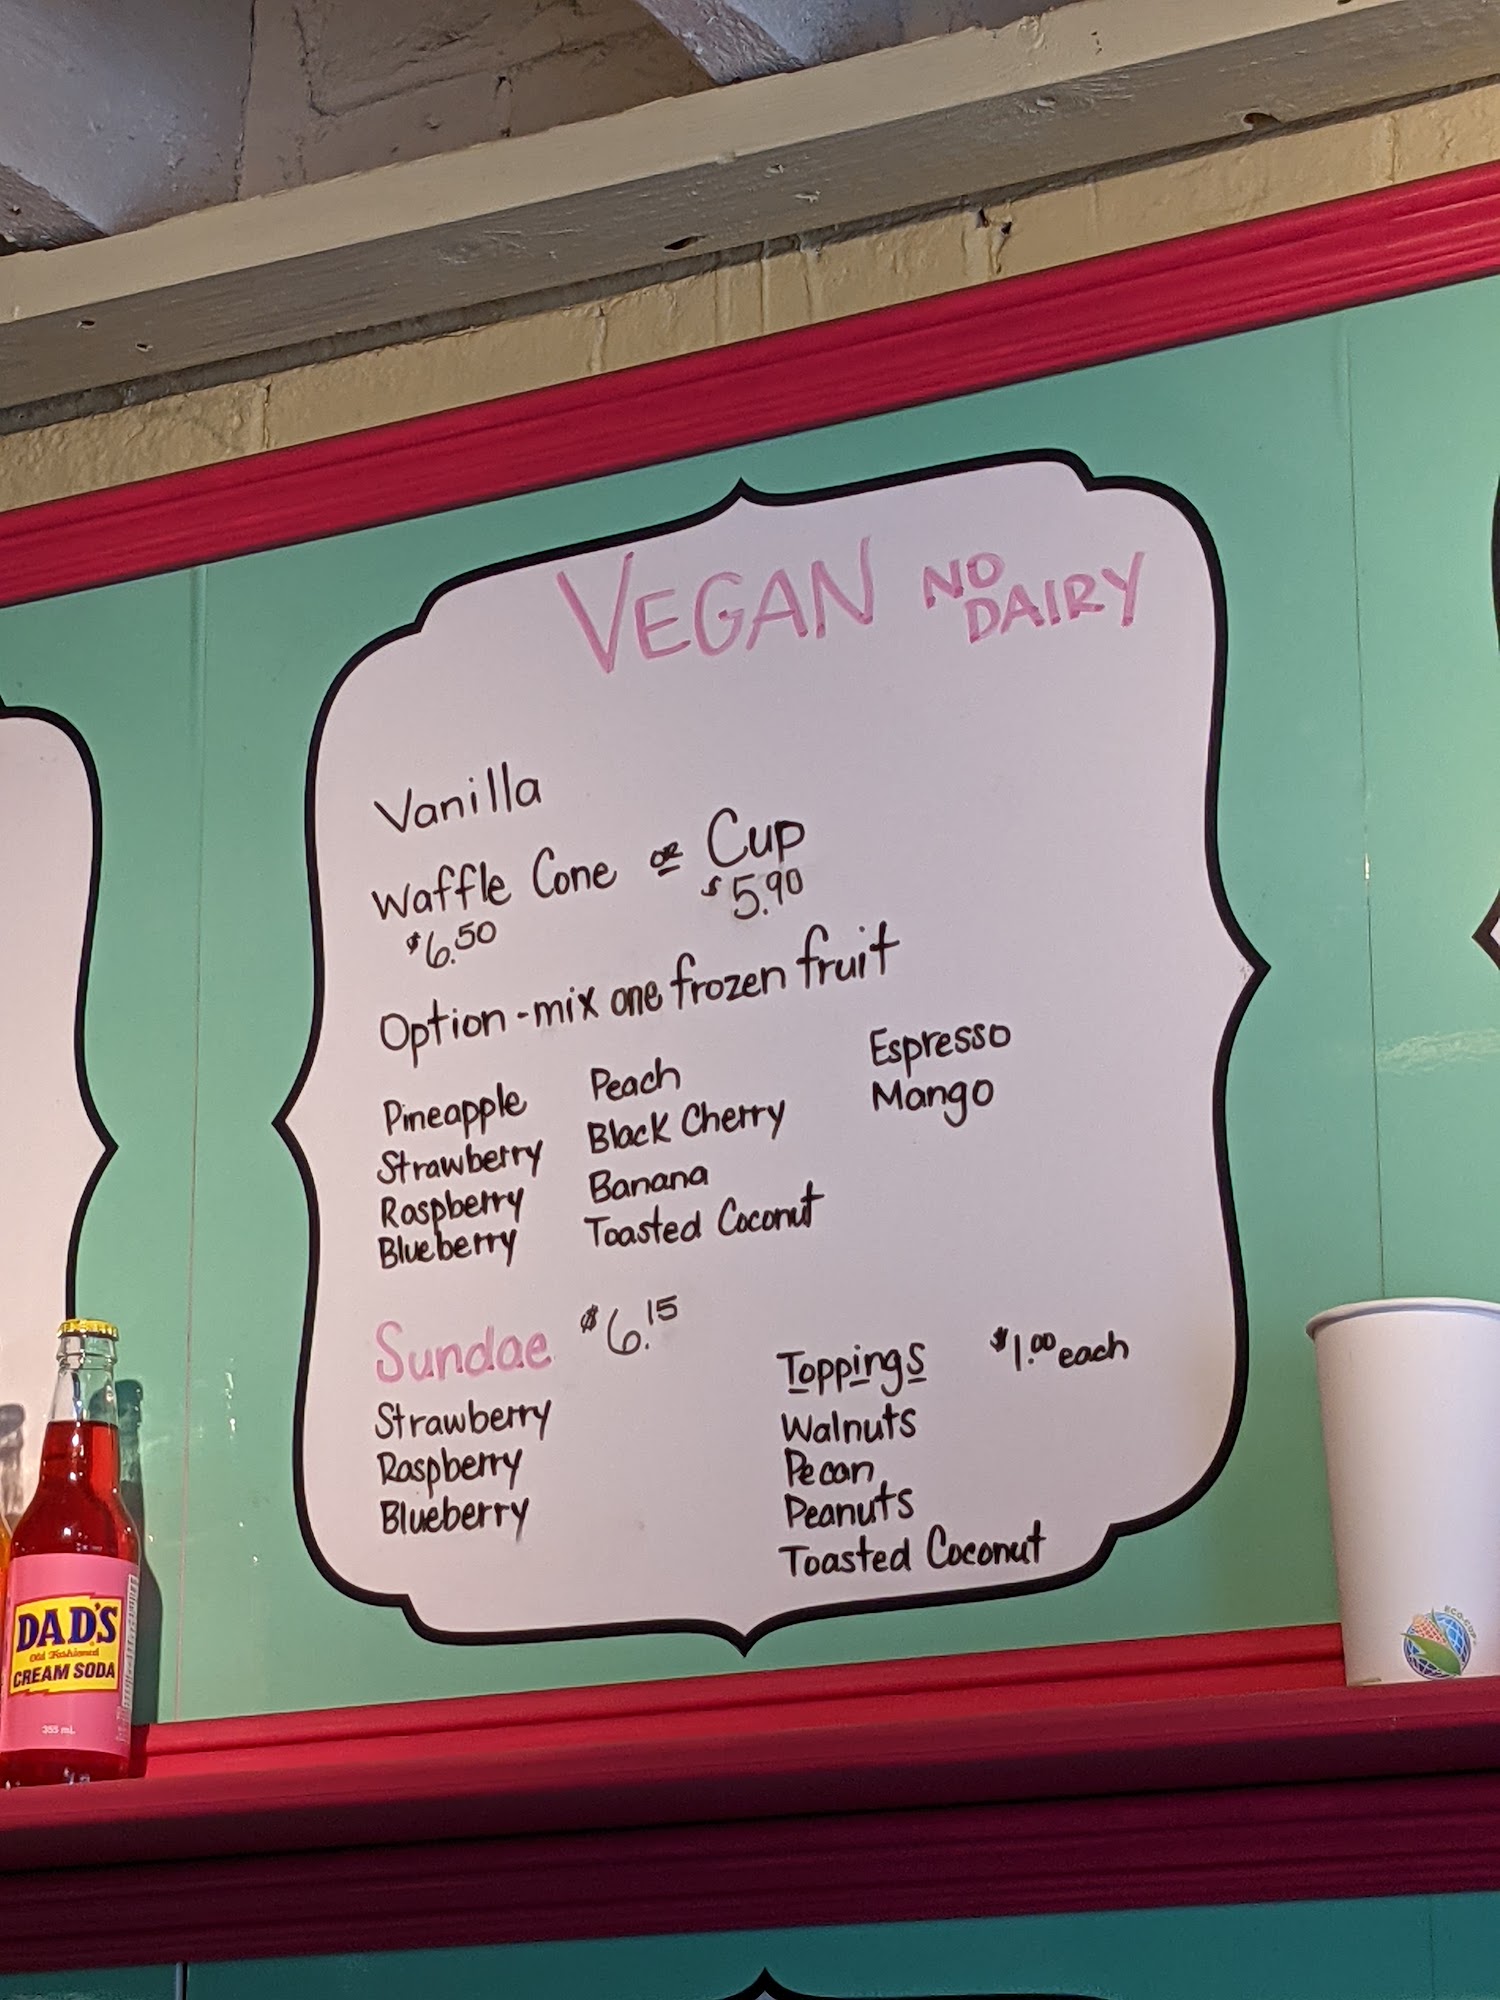 VEGAN NO DAIRY
Vanilla
Waffle Cone OR Cup
$6.50 $5.90
Option - mix one frozen fruit
Pineapple
Strawberry
Raspberry
Blueberry
Peach
Black Cherry
Banana
Toasted Coconut
Espresso
Mango
Sundae $6.15
Strawberry
Raspberry
Blueberry
Toppings $1.00 each
Walnuts
Pecan
Peanuts
Toasted Coconut
DAD'S
Old Fashioned
CREAM SODA
355 mL
ECO-CUP